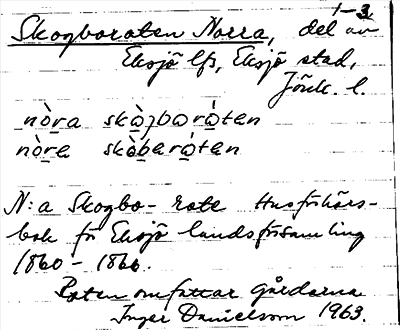 1-3
Skogboroten Norra, del av
Eksjö lfs, Eksjö stad,
Jönk. l.
nòra skòjboròten
nòre skòbaròten
N:a Skogbo-rote Husförhörs-
bok för Eksjö landsförsamling
1860-1866.
Roten omfattar gårderna
Inger Danielsson 1963.